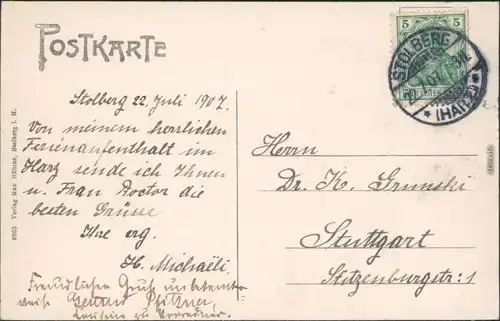 POSTKARTE
5 5
STOLBERG
(HARZ)
Stolberg 22. Juli 1907.
Von meinem herrlichen
Ferienaufenthalt im
Harz sende ich Ihnen
u. Frau Doctor die
besten Grüsse
Ihre erg.
H. Michaeli
Freundlichen Gruß unbekannter
weise
Herrn
Dr. K. Grunski
Stuttgart
Sitzenburgstr: 1
8863 Verlag Max Stolberg i. H.